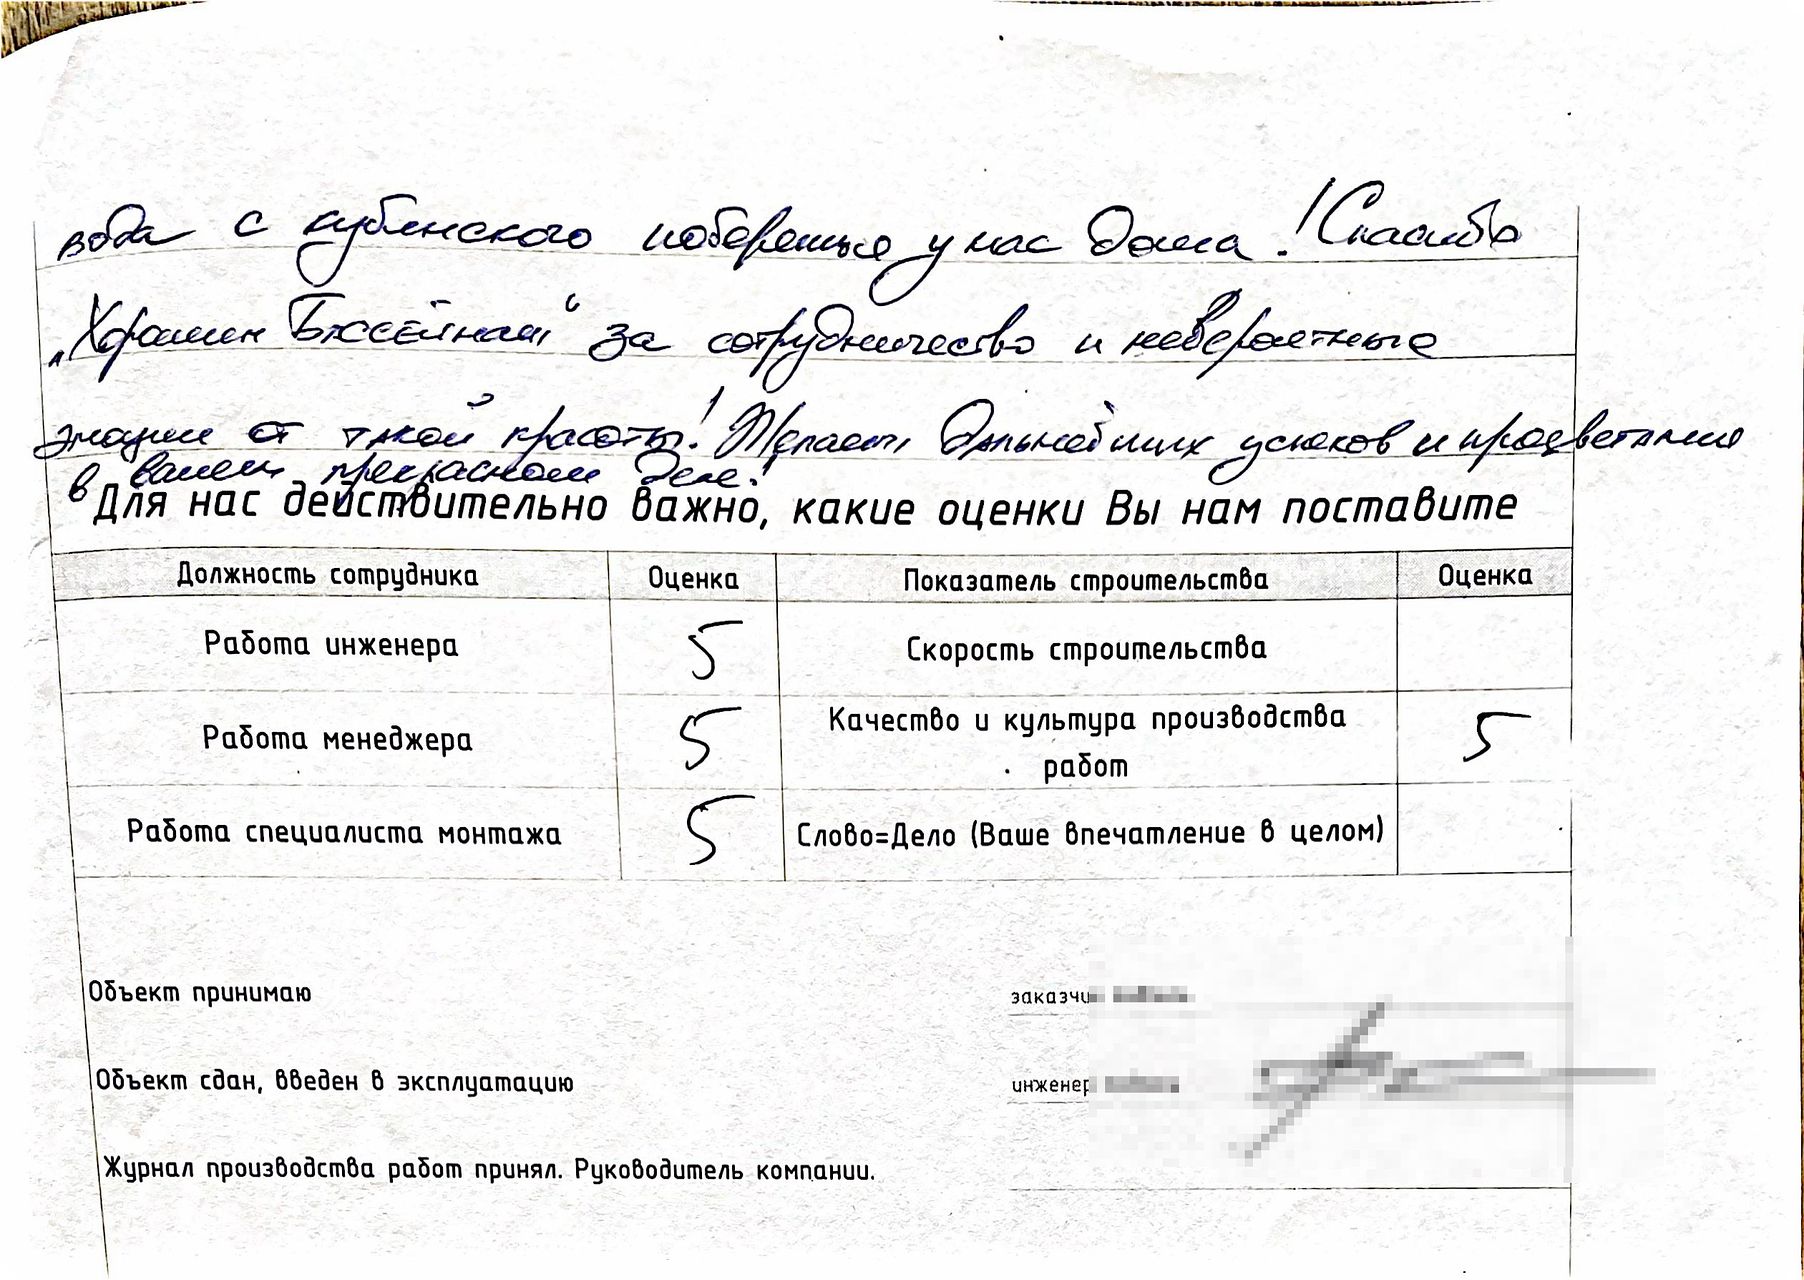 вода с кубинского побережье у нас дома! Спасибо
„Хорошим Бассейнам“ за сотрудничество и невероятные
эмоции от такой красоты! Желаем дальнейших успехов и процветания
в вашем прекрасном деле!
Для нас действительно важно, какие оценки Вы нам поставите
Должность сотрудника Оценка Показатель строительства Оценка
Работа инженера 5 Скорость строительства
Работа менеджера 5 Качество и культура производства работ 5
Работа специалиста монтажа 5 Слово=Дело (Ваше впечатление в целом)
Объект принимаю
Объект сдан, введен в эксплуатацию инженер
Журнал производства работ принял. Руководитель компании.